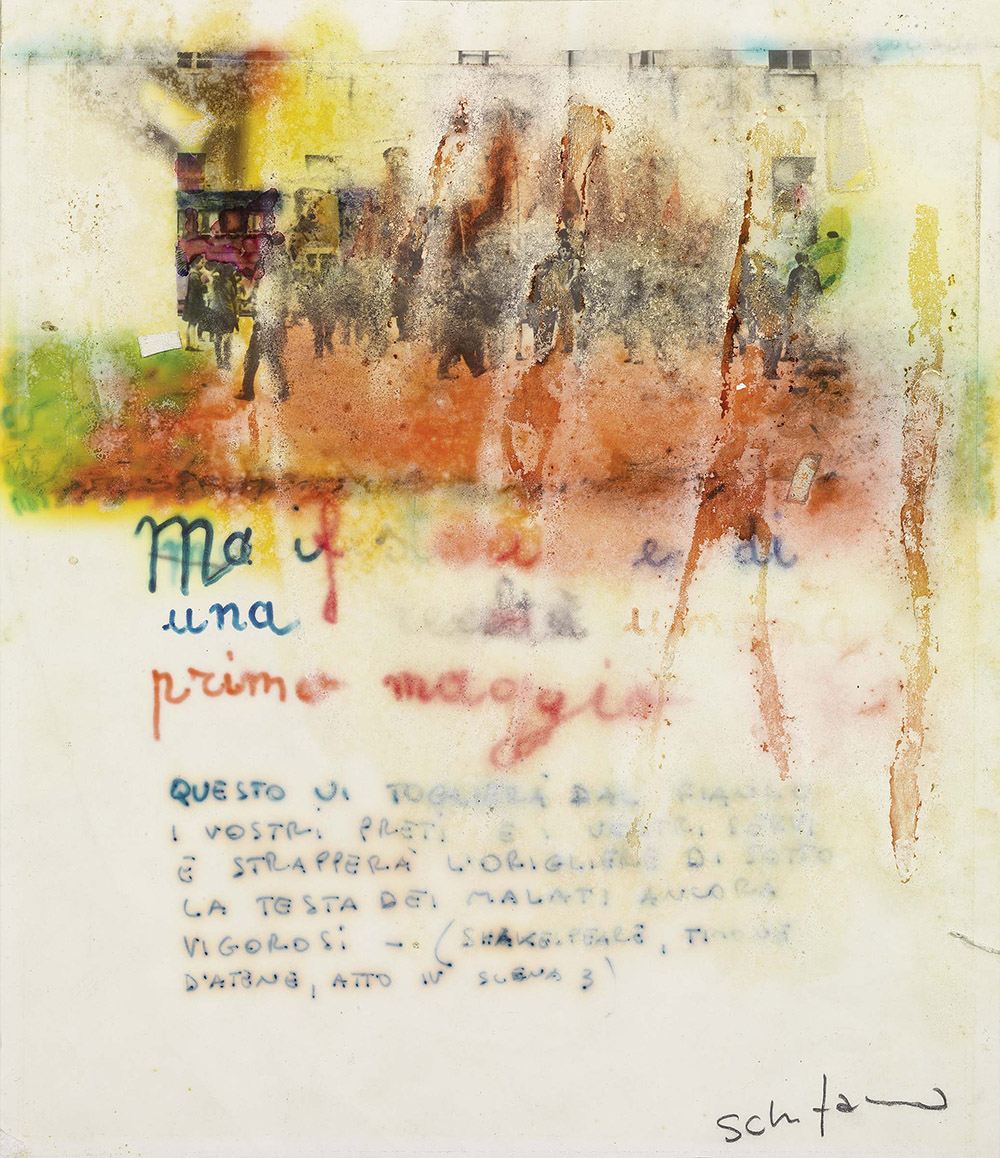 Ma il di
una
primo maggio
QUESTO VI TOGLIERÀ DAL FIANCO
I VOSTRI PRETI E I VOSTRI SERVI
E STRAPPERÀ L'ORIGLIERE DI SOTTO
LA TESTA DEI MALATI ANCORA
VIGOROSI - (SHAKESPEARE, TIMONE
D'ATENE, ATTO IV SCENA 3)
Schifano